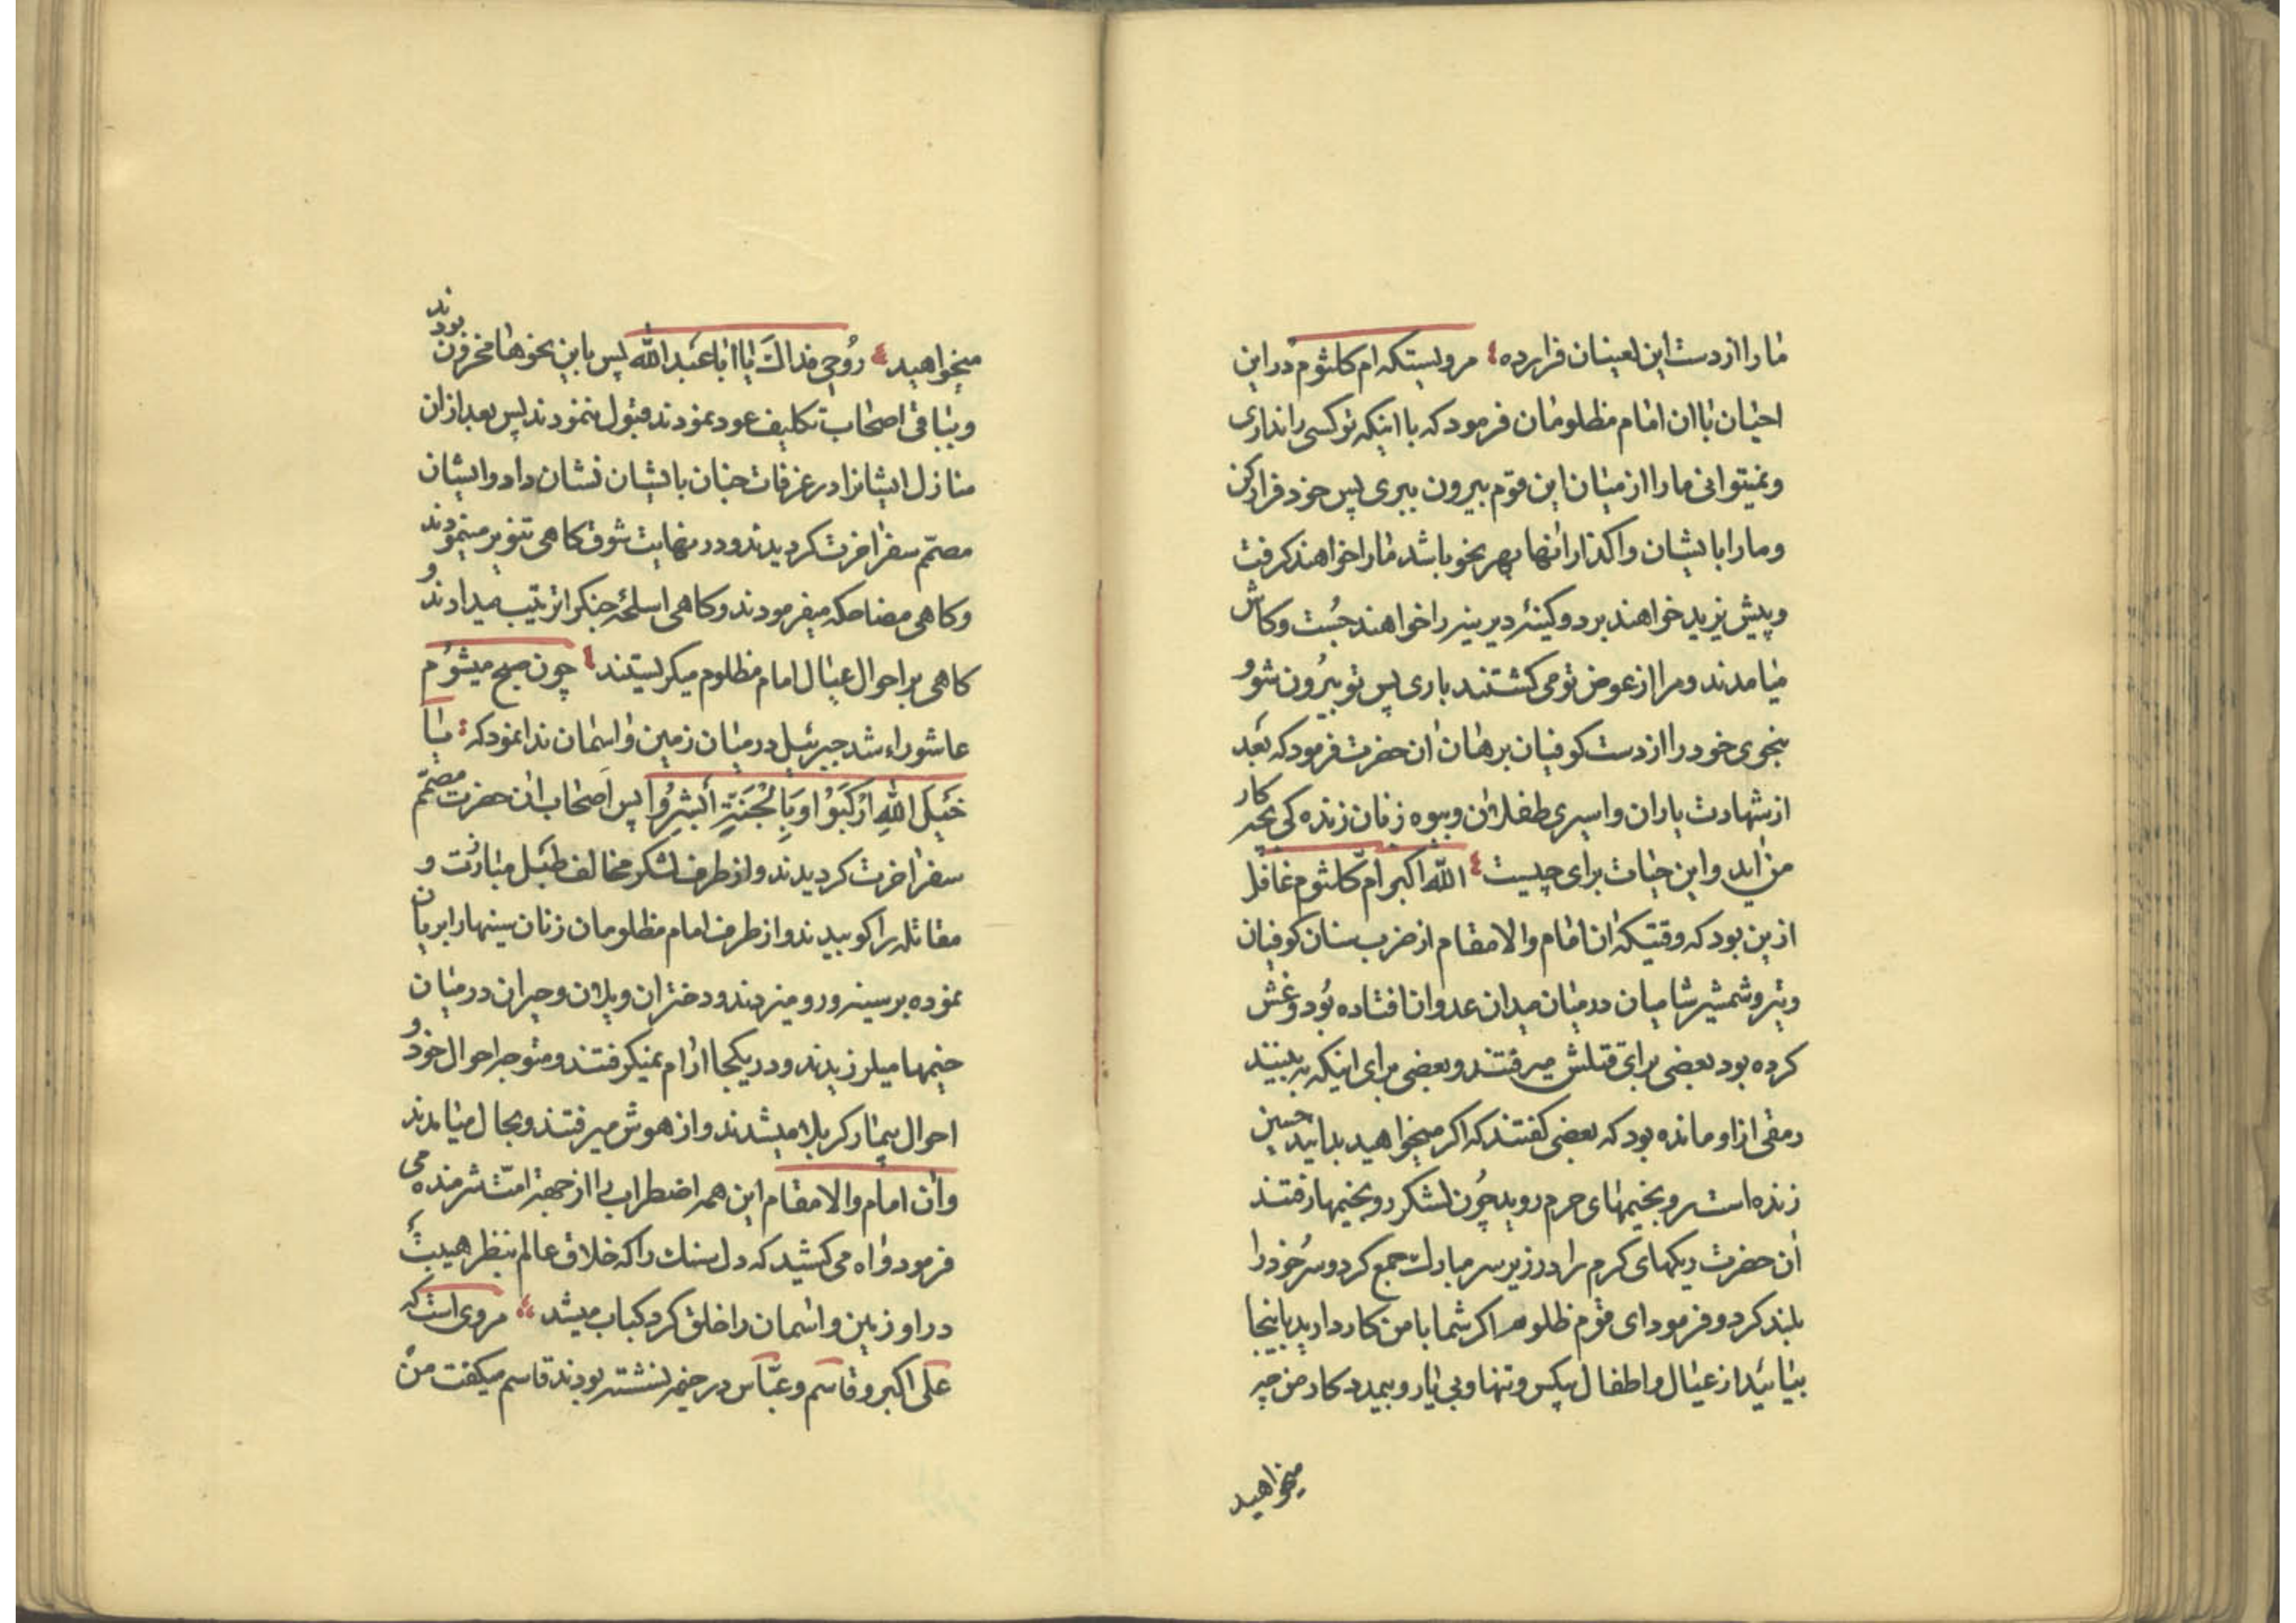 ما را از دست این لعینان قرار ده مرویستکه ام کلثوم در این
احیان با آن امام مظلومان فرمود که با اینکه تو کسی را نداری
و نمیتوانی ما را از میان این قوم بیرون ببری پس خود فرار کن
و ما را با یشان واگذار آنها بهر نحو باشد ما را خواهند کرفت
و پیش یزید خواهند برد و کینهٔ دیرینه را خواهند جُست و کاش
میامدند و مرا از عوض تو می کشتند باری پس تو بیرون شو و
بنحوی خود را از دست کوفیان برهان آن حضرت فرمود که بَعد
از شهادت یاران و اسیری طفلان و بیوه زنان زنده کی بچه کار
من آید و این حیات برای چیست الله اکبر امّ کلثوم غافل
ازین بود که وقتیکه آن امام والامقام از ضرب سنان کوفیان
و تیر و شمشیر شامیان در میان میدان عدوان افتاده بُود و غش
کرده بود بعضی برای قتلش میرفتند و بعضی برای اینکه به بینند
رمقی از او مانده بود که بعضی کفتند که اکر میخواهید بدانید حسین
زنده است رو بخیمهای حرم روید چُون لشکر رو بخیمها رفتند
آن حضرت ریکهای کرم را در زیر سر مبارک جمع کرد و سر خود را
بلند کرد و فرمود ای قوم ظلوم اکر شما با من کار دارید باینجا
بیائید از عیال و اطفال بیکس و تنها و بی یار و بیمدد کار من چه
میخواهید
میخواهید رُوحی فداک یا ابا عَبد الله پس باین نحوها محزون بودند
و بباقی اصحاب تکلیف عود نمودند قبول ننمودند پس بعد از ان
منازل ایشانرا در غرفات جنان بایشان نشان داد و ایشان
مصمّم سفر آخرت کردیدند و در نهایت شوق کاهی تنویر مینمودند
و کاهی مضاحکه میفرمودند و کاهی اسلحهٔ جنک را ترتیب میدادند و
کاهی بر احوال عیال امام مظلوم میکریستند چون صبح میشوُم
عاشوراء شد جبرئیل در میان زمین و آسمان ندا نمود که یا
خَیلَ اللهِ ارْکَبَوُا وَ بِالْجَنَةِ اَبْشِرُوا پس اَصحاب آن حضرت مصمّم
سفر آخرت کردیدند و از طرف لشکر مخالف طَبل مبارزت و
مقاتله را کوبیدند و از طرف امام مظلومان زنان سینها را بریان
نموده بر سینه و رو میزدند و دختران ویلان و حیران در میان
خیمها میلرزیدند و در یکجا آرام نمیکرفتند و متوجه احوال خود و
احوال بیمار کربلا میشدند و از هوش میرفتند و بحال میامدند
و آن امام والامقام این همه اضطراب را از جهة امّت شرمنده می
فرمود و آه می کشید که دل سنک را که خلاق عالم بنظر هیبت
در او زمین و آسمان را خلق کرد کباب میشد مروی است که
علی اکبر و قاسم و عبّاس در خیمه نشسته بودند قاسم میکفت من